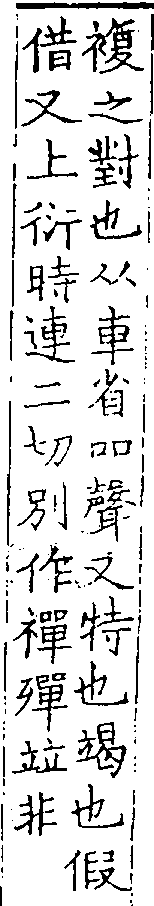 複之對也从車省吅聲又特也竭也假
借又上衍時連二切別作禪殫竝非